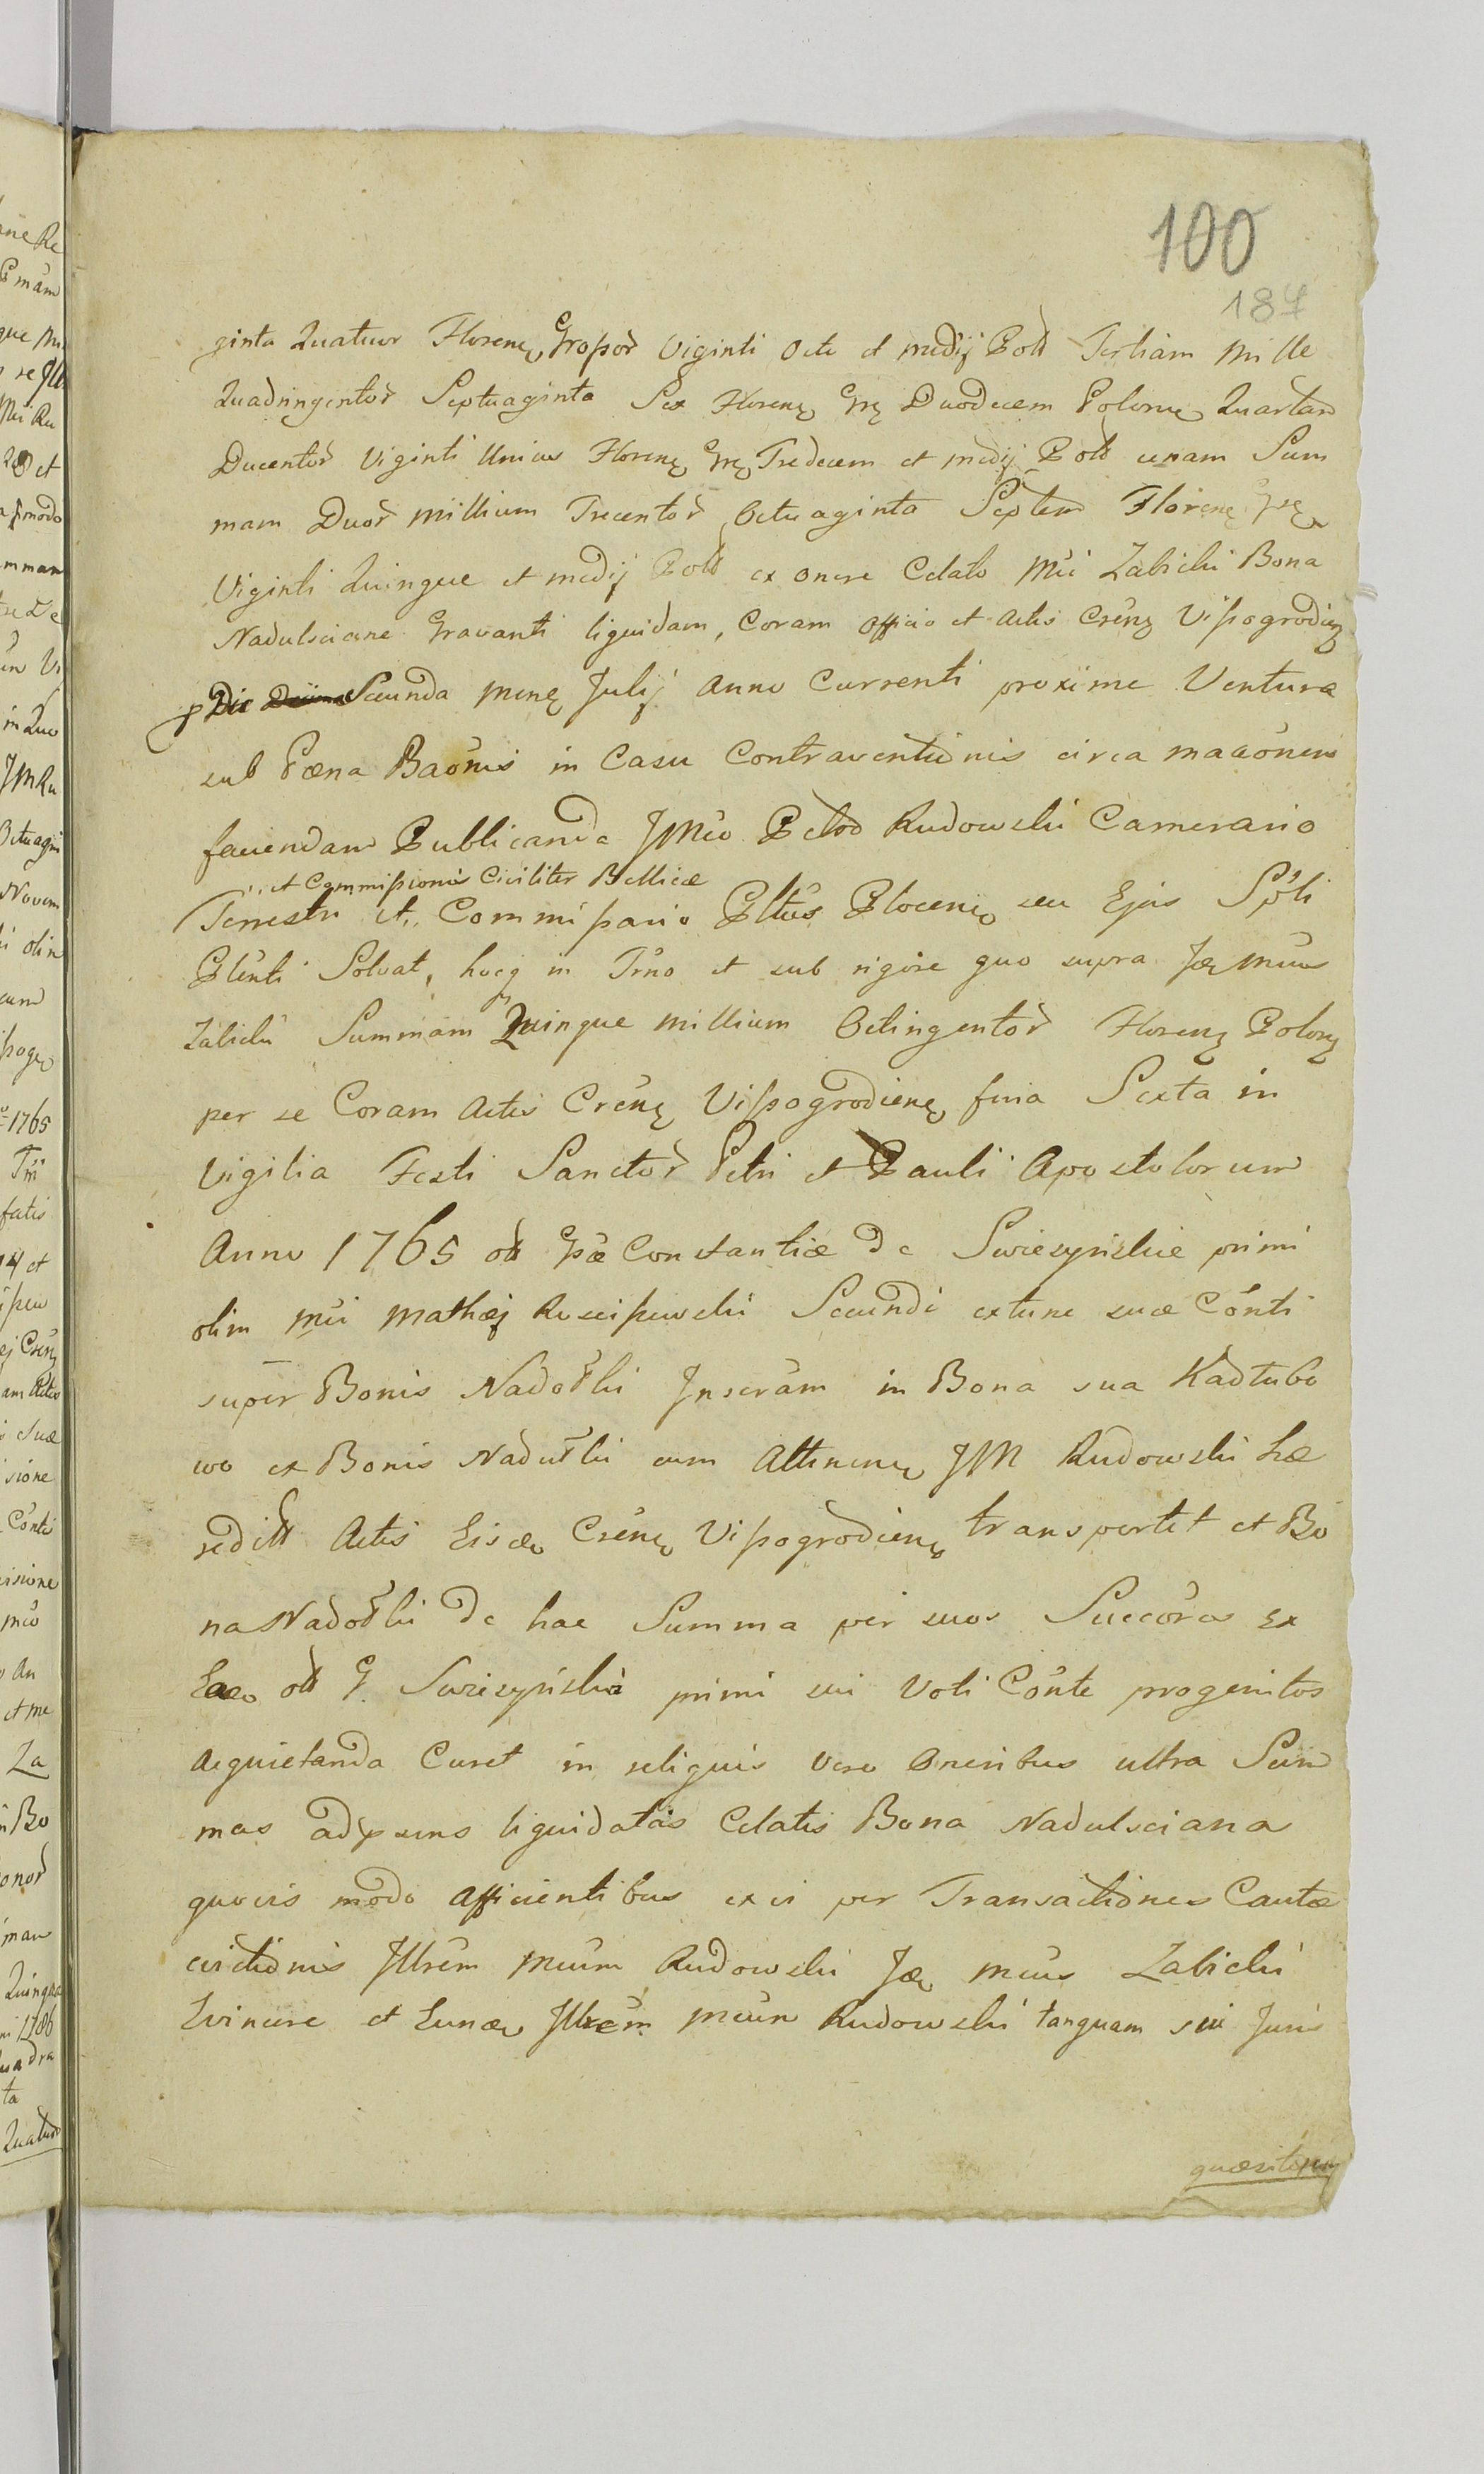 100
187
ginta Quatuor Floren, Grossor Viginti Octo et medij Poll Tertiam Mille
Quadringentor Septuaginta Sex Floren Gr Duodecem Polon Quartam
Ducentor Viginti Unius Floren Gr Tredecem et medij Poll unam Sum
mam Duor Millium Trecentor Octuaginta Septem Floren Gr
Viginti Quinque et medij Poll ex onere Celato Mci Zabicki Bona
Nadulsciane Gravanti liquidam, Coram Officio et Actis Csen Vissogrodien
p Die Secunda Men Julij Anno Currenti proxime Ventura
sub Pæna Baonis in Casu Contraventionis circa
faciendam Publicanda JMco Rudowski Camerario
et Commissionis Civiliter Bellicæ
Terrestri et Commissario Plocen seu Ejus Spli
Plenti Solvat, hocq in Trno et sub rigore quo supra Mcus
Zabicki Summam Quinque Millium Octingentor Floren Polon
per se Coram Actis Csen Vissogrodien feria Sexta in
Vigilia Festi Sanctor Petri et Pauli Apostolorum
Anno 1765 Constantiæ de Swiezynskie primi
olim Mci Mathæj Kosciszewski Secundi extunc suæ Conti
super Bonis Nadołki Inscram in Bona sua Kadłubo
wo ex Bonis Nadułki cum Attinen JM Rudowski hæ
redit Actis Eisd Csen Vissogrodien transportet et Bo
na Nadołki de hac Summa per suos Succores Ex
G. Swiezynska primi sui Voti Conte progenitos
acquietanda Curet in reliquis vero Oneribus ultra Sum
mas adpræns liquidatas Celatis Bona Nadulsciana
quovis modo afficientibus ex vi per Transactiones Cautæ
evictionis Jllrem Mcum Rudowski Mcus Zabicki
Evincere et Eund Jllrem Mcum Rudowski tanquam sui Juris
quæsitorem